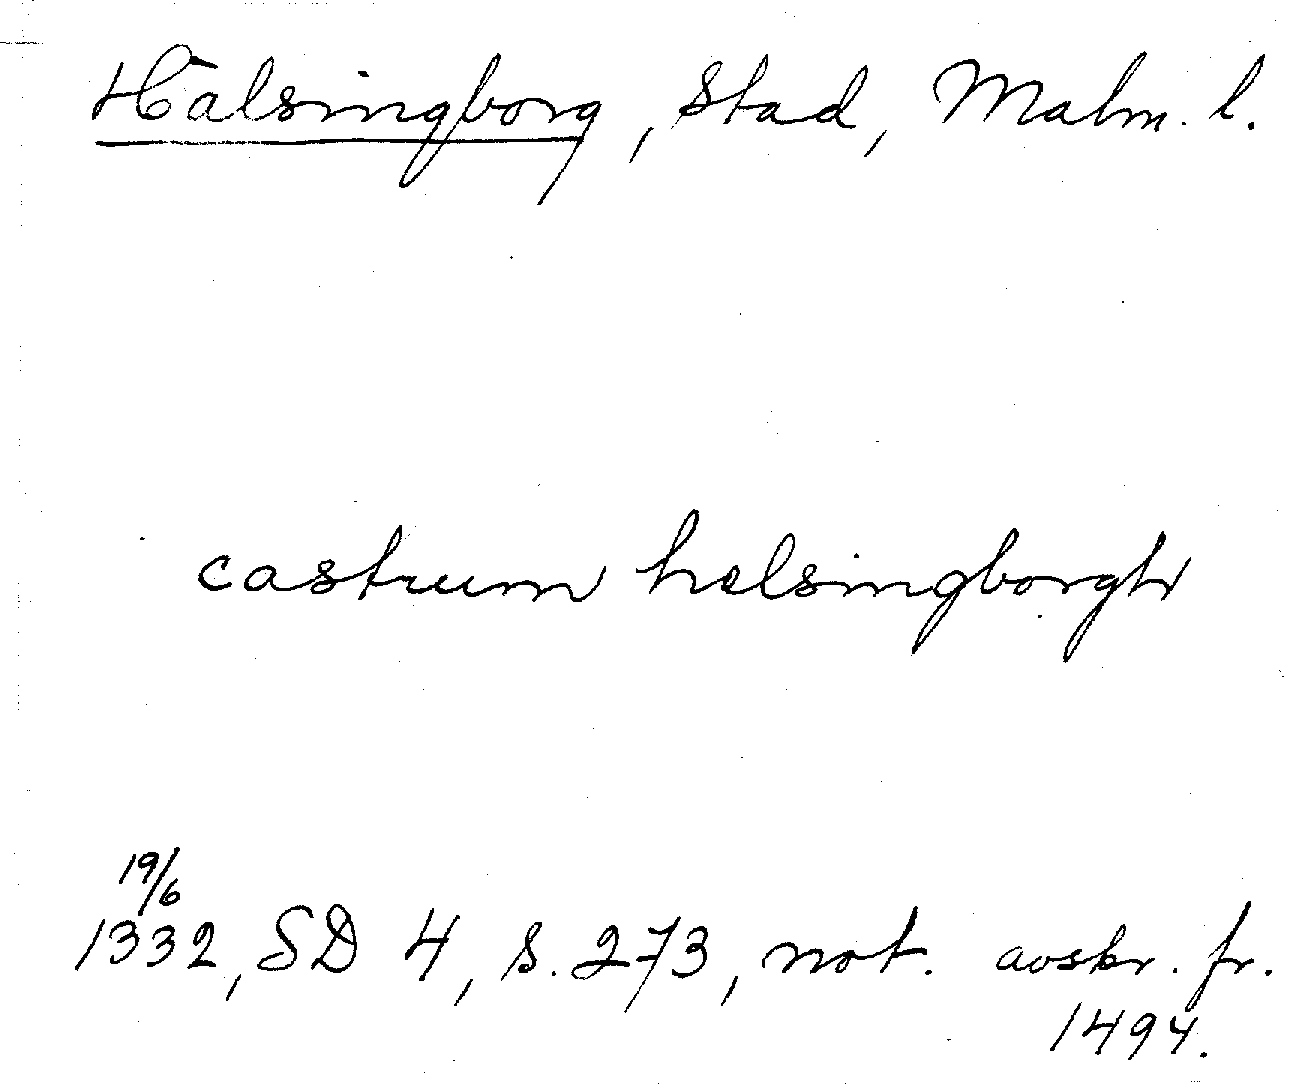 Hälsingborg, stad, Malm. l.
castrum helsingborgh
19/6
1332, SD 4, s. 273, not. avskr. fr.
1494.